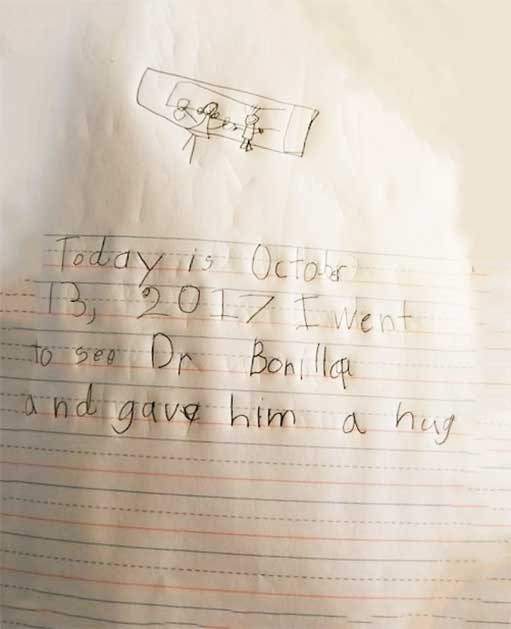 Today is October
13, 2017 I went
to see Dr Bonilla
and gave him a hug